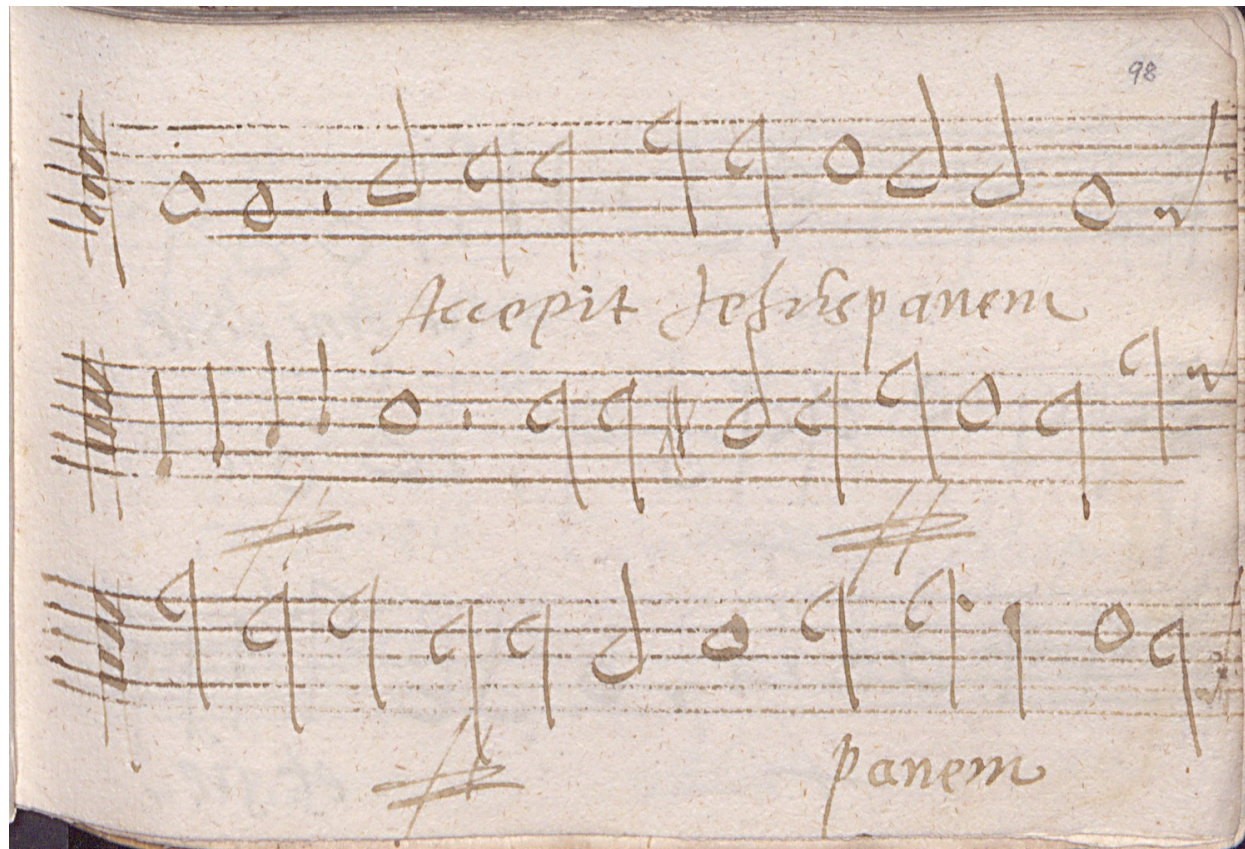 98
Accepit Jesus panem
panem